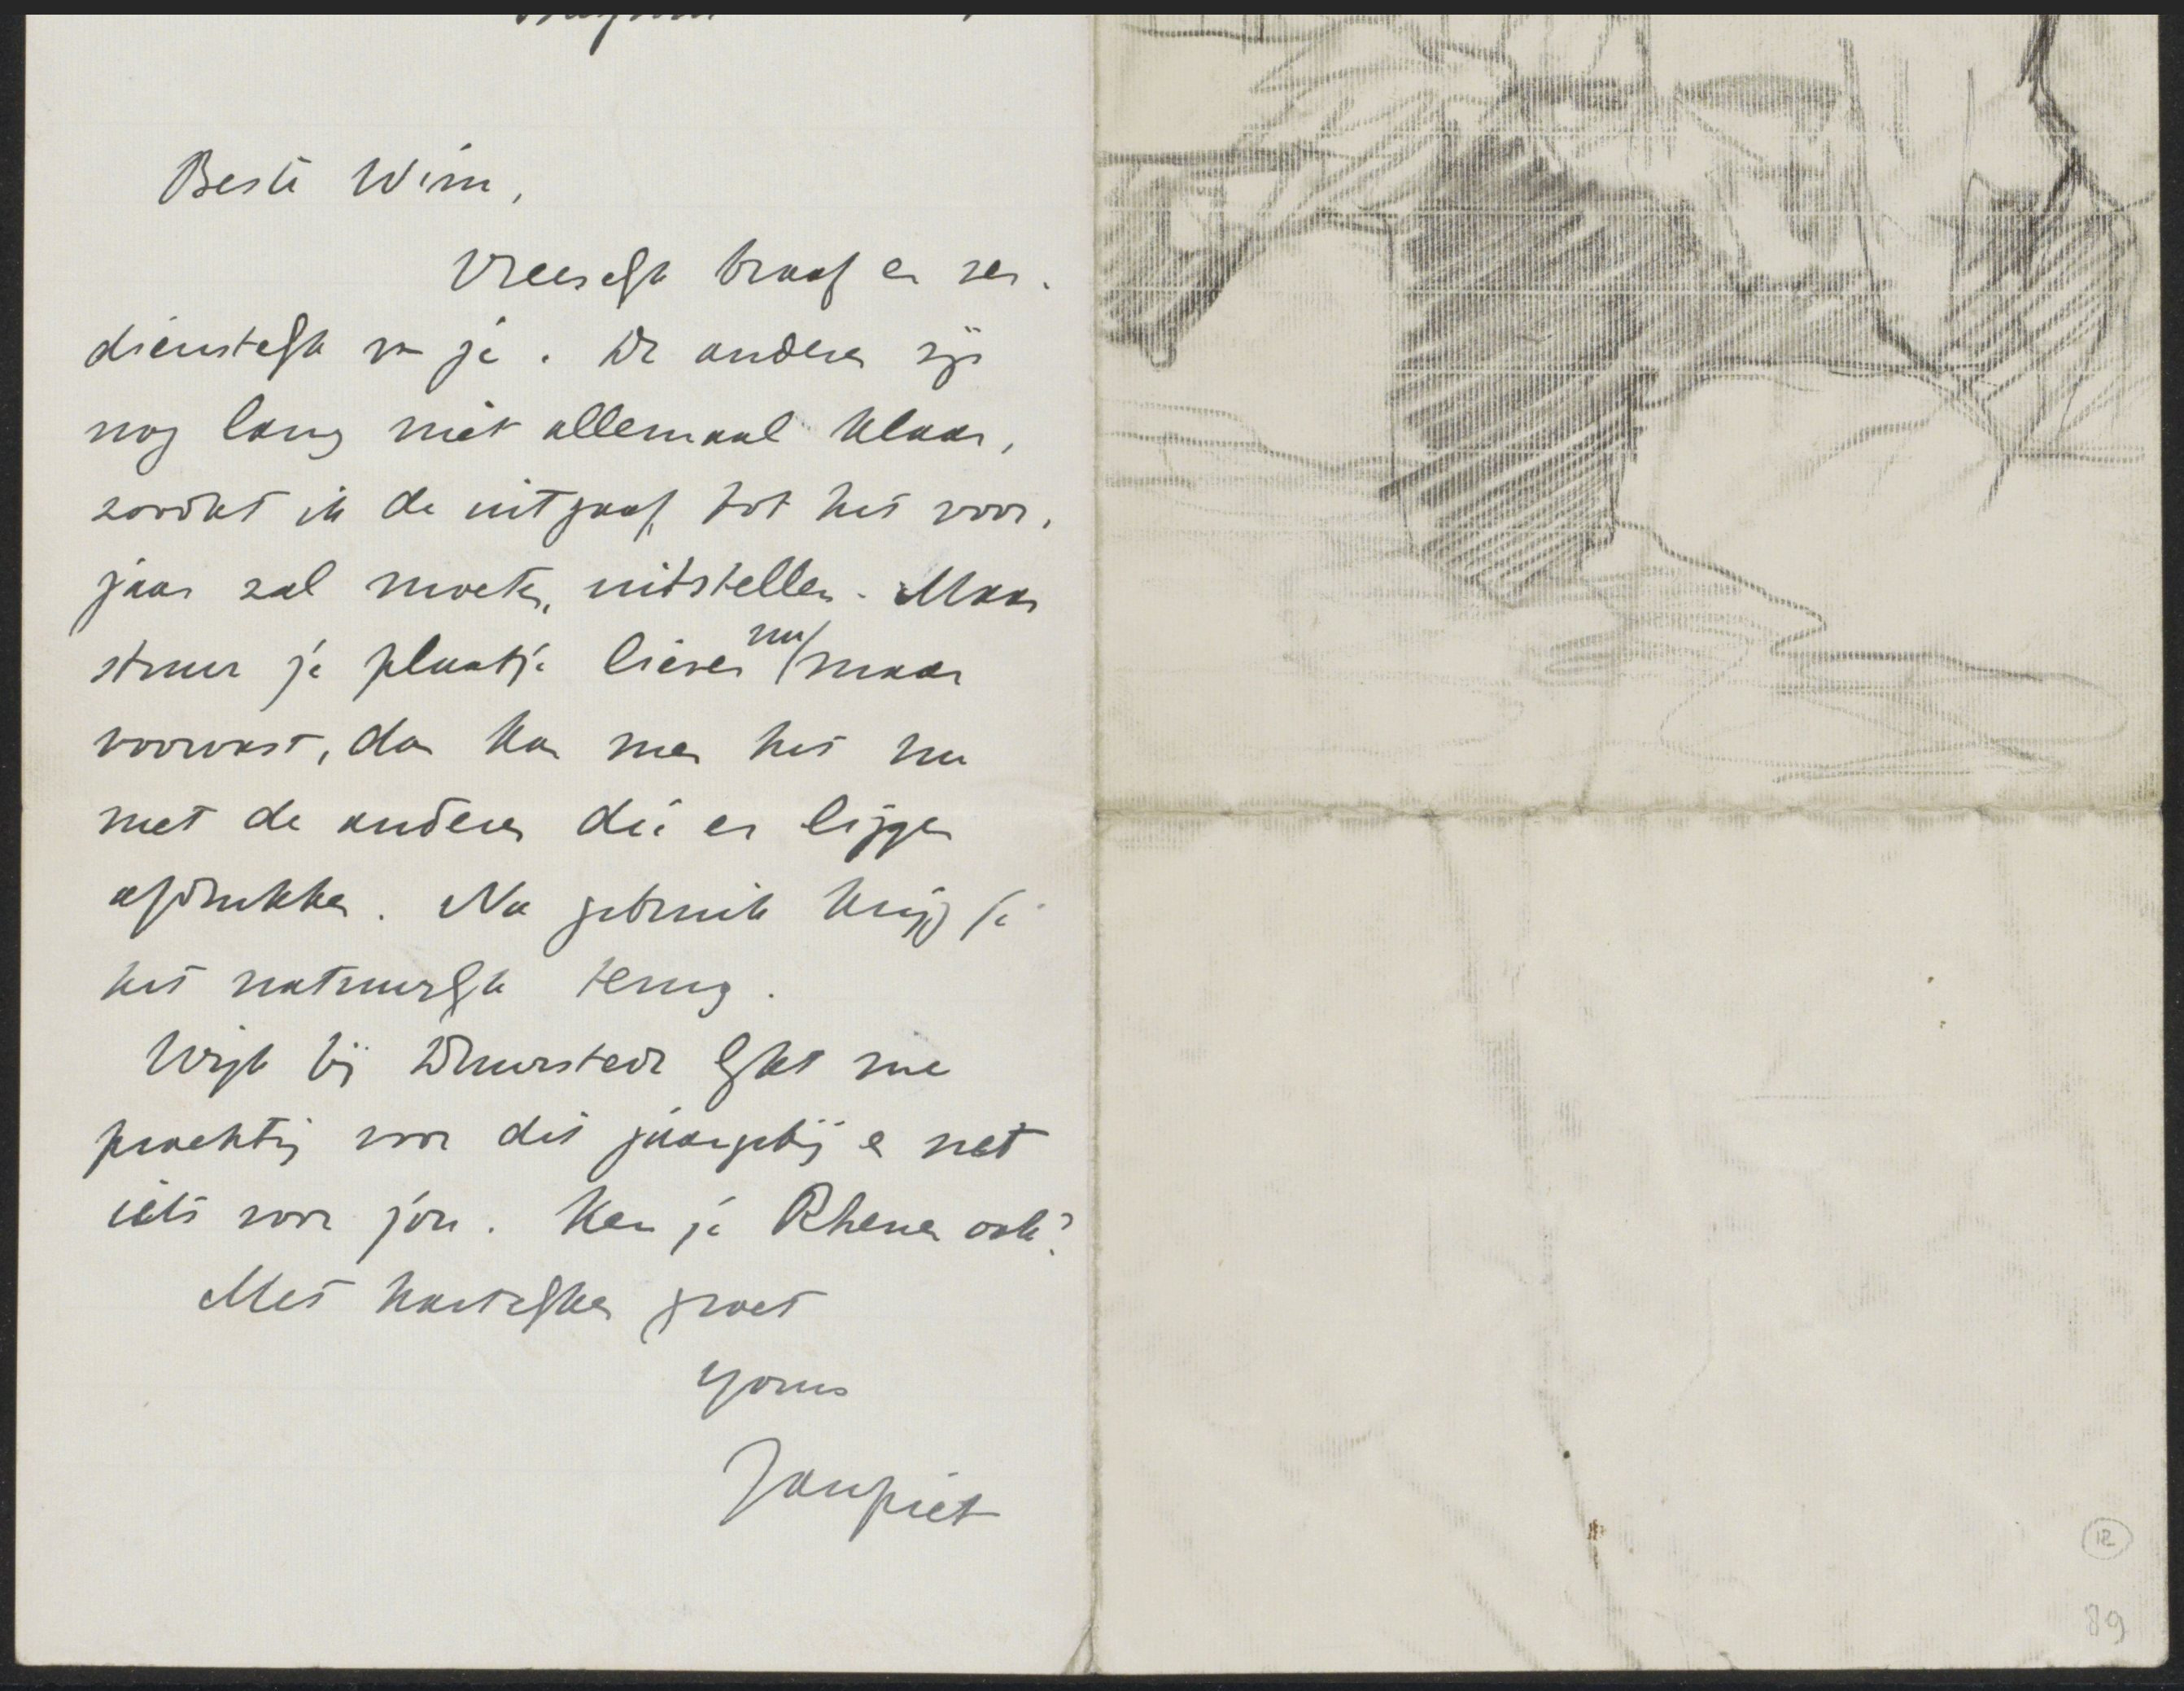 Beste Wim,
Vreeselijk braaf en ver-
dienstelijk van je. De anderen zijn
nog lang niet allemaal klaar,
zoodat ik de uitgaaf tot het voor-
jaar zal moeten uitstellen. Maar
stuur je plaatje liever nu maar
voorvast, dan kan men het nu
met de anderen die er liggen
afdrukken. Na gebruik krijg je
het natuurlijk terug.
Wijk bij Duurstede lijkt me
prachtig voor dit jaargetij en net
iets voor jou. Ken je Rhenen ook?
Met hartelijken groet
yours
Janpiet
12
89